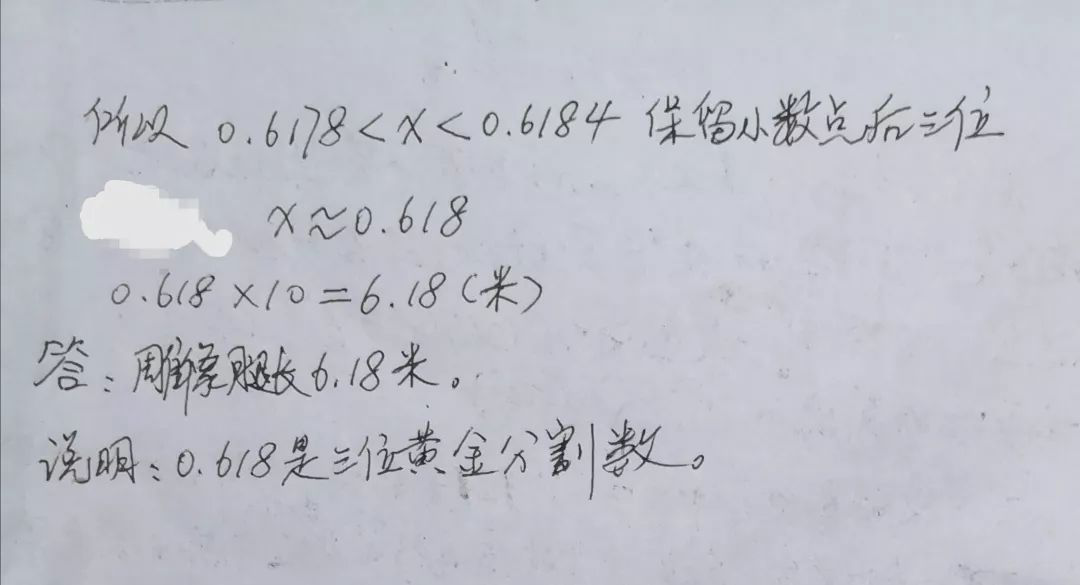 所以 0.6178<x<0.6184 保留小数点后三位
x≈0.618
0.618×10=6.18(米)
答:雕像腿长6.18米。
说明:0.618是三位黄金分割数。